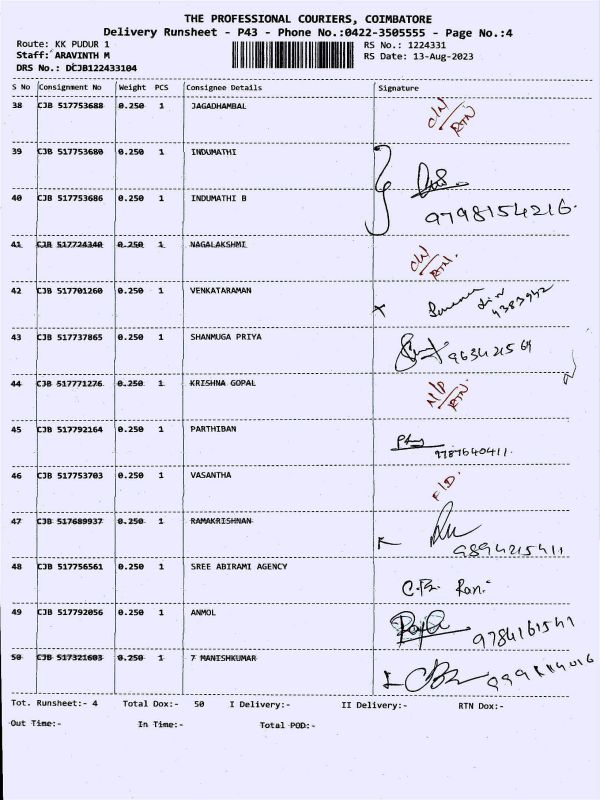 THE PROFESSIONAL COURIERS, COIMBATORE
Delivery Runsheet - P43 - Phone No.:0422-3505555 - Page No.:4
Route: KK PUDUR 1 RS No.: 1224331
Staff: ARAVINTH M RS Date: 13-Aug-2023
DRS No.: DCJB122433104
S No Consignment No Weight PCS Consignee Details Signature
38 CJB 517753688 0.250 1 JAGADHAMBAL
RTN
39 CJB 517753680 0.250 1 INDUMATHI
40 CJB 517753686 0.250 1 INDUMATHI B
9798154216
41 CJB 517724340 0.250 1 NAGALAKSHMI
RTN
42 CJB 517701260 0.250 1 VENKATARAMAN
43 CJB 517737865 0.250 1 SHANMUGA PRIYA
44 CJB 517771276 0.250 1 KRISHNA GOPAL
RTN
45 CJB 517792164 0.250 1 PARTHIBAN
9787640411
46 CJB 517753703 0.250 1 VASANTHA
47 CJB 517689937 0.250 1 RAMAKRISHNAN
9894215411
48 CJB 517756561 0.250 1 SREE ABIRAMI AGENCY
49 CJB 517792056 0.250 1 ANMOL
50 CJB 517321603 0.250 1 7 MANISHKUMAR
Tot. Runsheet:- 4 Total Dox:- 50 I Delivery:- II Delivery:- RTN Dox:-
Out Time:- In Time:- Total POD:-